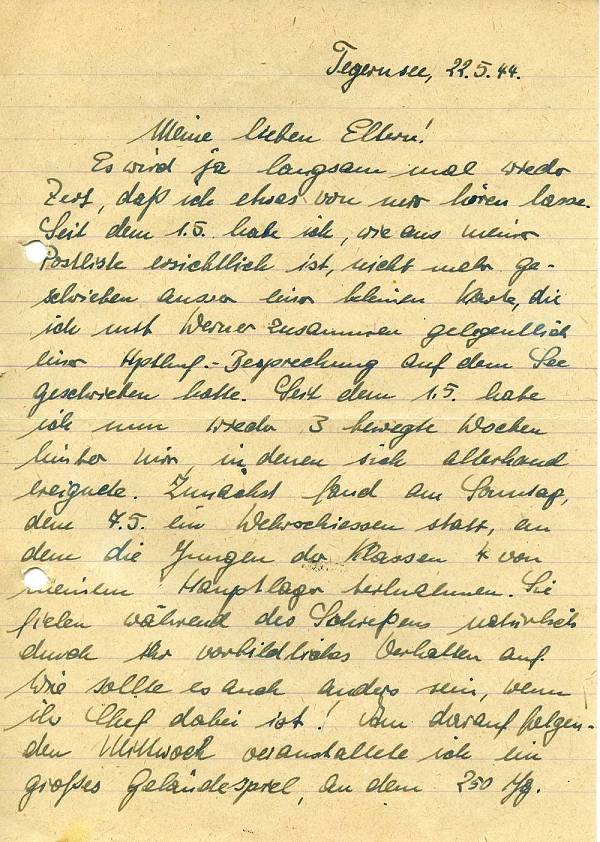 Tegernsee, 22.5.44.
Meine lieben Eltern!
Es wird ja langsam mal wieder
Zeit, daß ich etwas von mir hören lasse.
Seit dem 1.5. habe ich, wie aus meiner
Postliste ersichtlich ist, nicht mehr ge-
schrieben ausser einer kleinen Karte, die
ich mit Werner zusammen gelegentlich
einer Hptluf.-Besprechung auf dem See
geschrieben hatte. Seit dem 1.5. habe
ich nun wieder 3 bewegte Wochen
hinter mir, in denen sich allerhand
ereignete. Zunächst fand am Sonntag,
dem 7.5. ein Wehrschiessen statt, an
dem die Jungen der Klassen 4 von
meinem Hauptlager teilnahmen. Sie
fielen während des Schießens natürlich
durch ihr vorbildliches Verhalten auf.
Wie sollte es auch anders sein, wenn
ihr Chef dabei ist! Am darauf folgen-
den Mittwoch veranstaltete ich ein
großes Geländespiel, an dem 250 Jg.